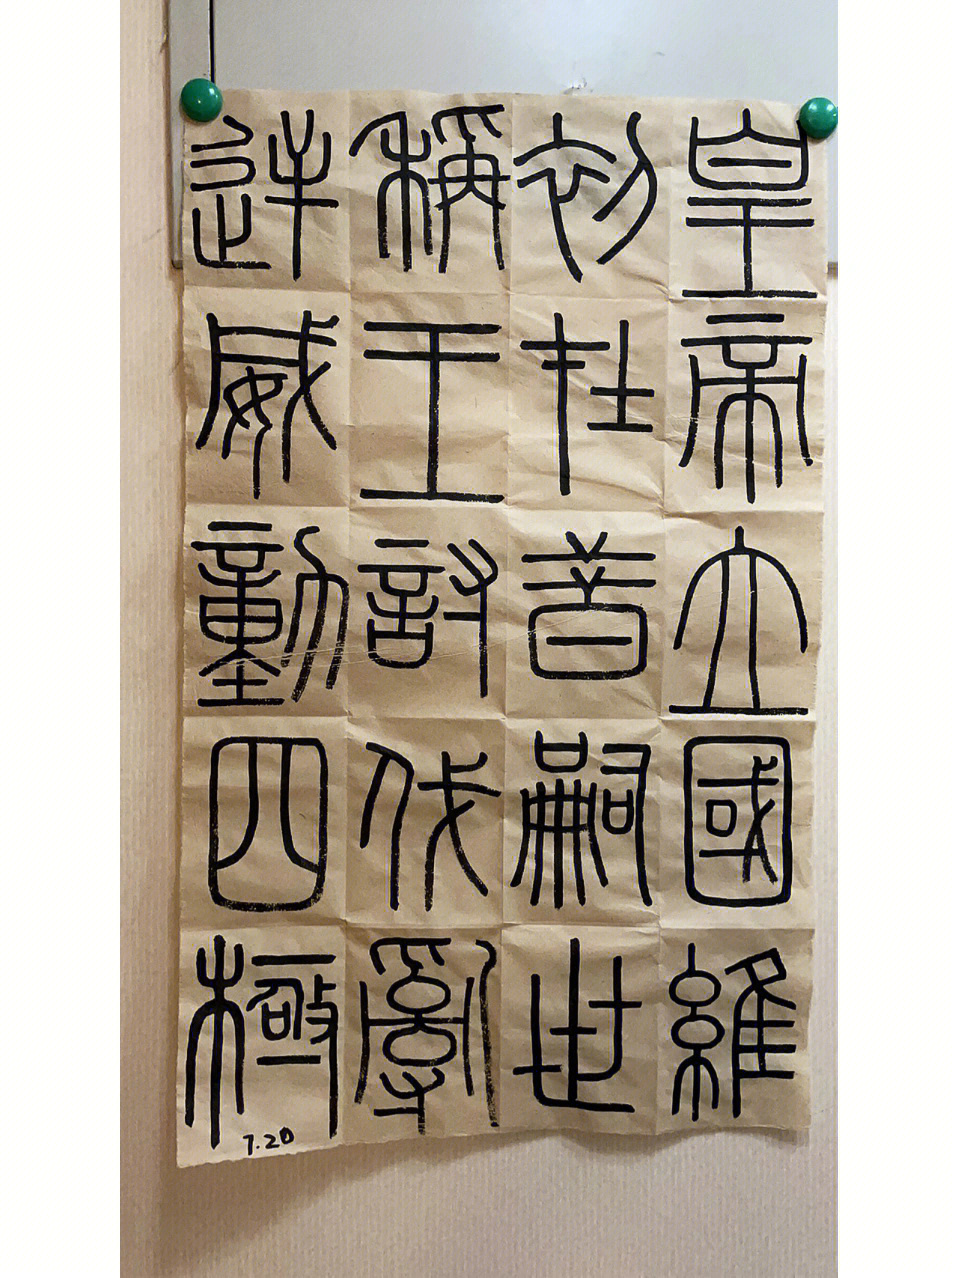 皇帝立國維
初在昔嗣世
稱王討伐亂
逆威動四極
7.20